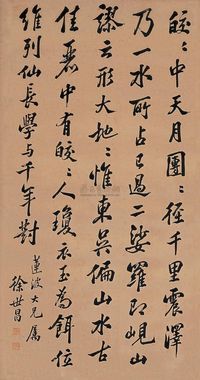 皎〻中天月團〻徑千里震澤
乃一水所占已過二娑羅即峴山
謬云形大地〻惟東吳偏山水古
佳麗中有皎〻人瓊衣玉為餌位
維列仙長學與千年對
蓮波大兄屬
徐世昌